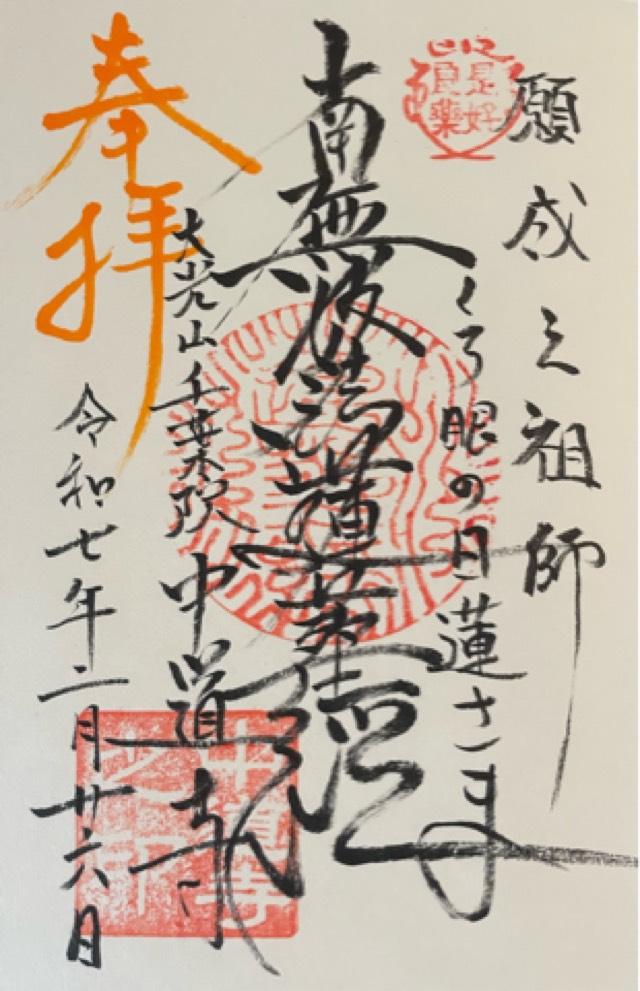 是好
良薬
願成之祖師
くろ眼の日蓮さま
南無妙法蓮華経
大光山千葉院中道寺
奉拝
令和七年二月廿六日
中道寺
之印